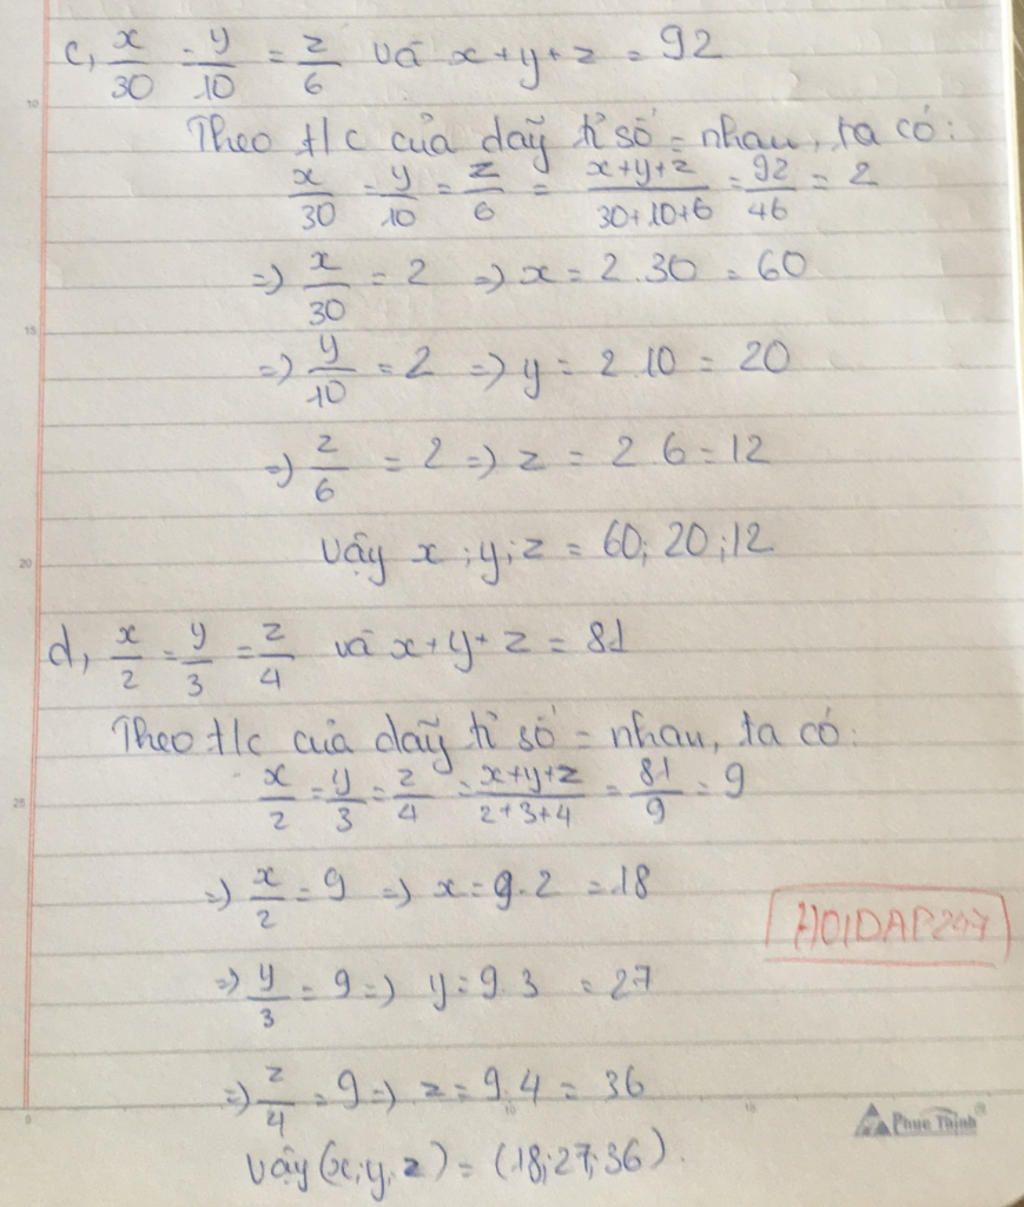 c, x/30 = y/10 = z/6 và x+y+z = 92
Theo t/c của dãy tỉ số = nhau, ta có:
x/30 = y/10 = z/6 = x+y+z/30+10+6 = 92/46 = 2
=> x/30 = 2 => x = 2.30 = 60
=> y/10 = 2 => y = 2.10 = 20
=> z/6 = 2 => z = 2.6 = 12
Vậy x;y;z = 60;20;12
d, x/2 = y/3 = z/4 và x+y+z = 81
Theo t/c của dãy tỉ số = nhau, ta có:
x/2 = y/3 = z/4 = x+y+z/2+3+4 = 81/9 = 9
=> x/2 = 9 => x = 9.2 = 18
HOIDAP247
=> y/3 = 9 => y = 9.3 = 27
=> z/4 = 9 => z = 9.4 = 36
Phuc Thinh
Vậy (x;y;z) = (18;27;36).
10
15
20
25